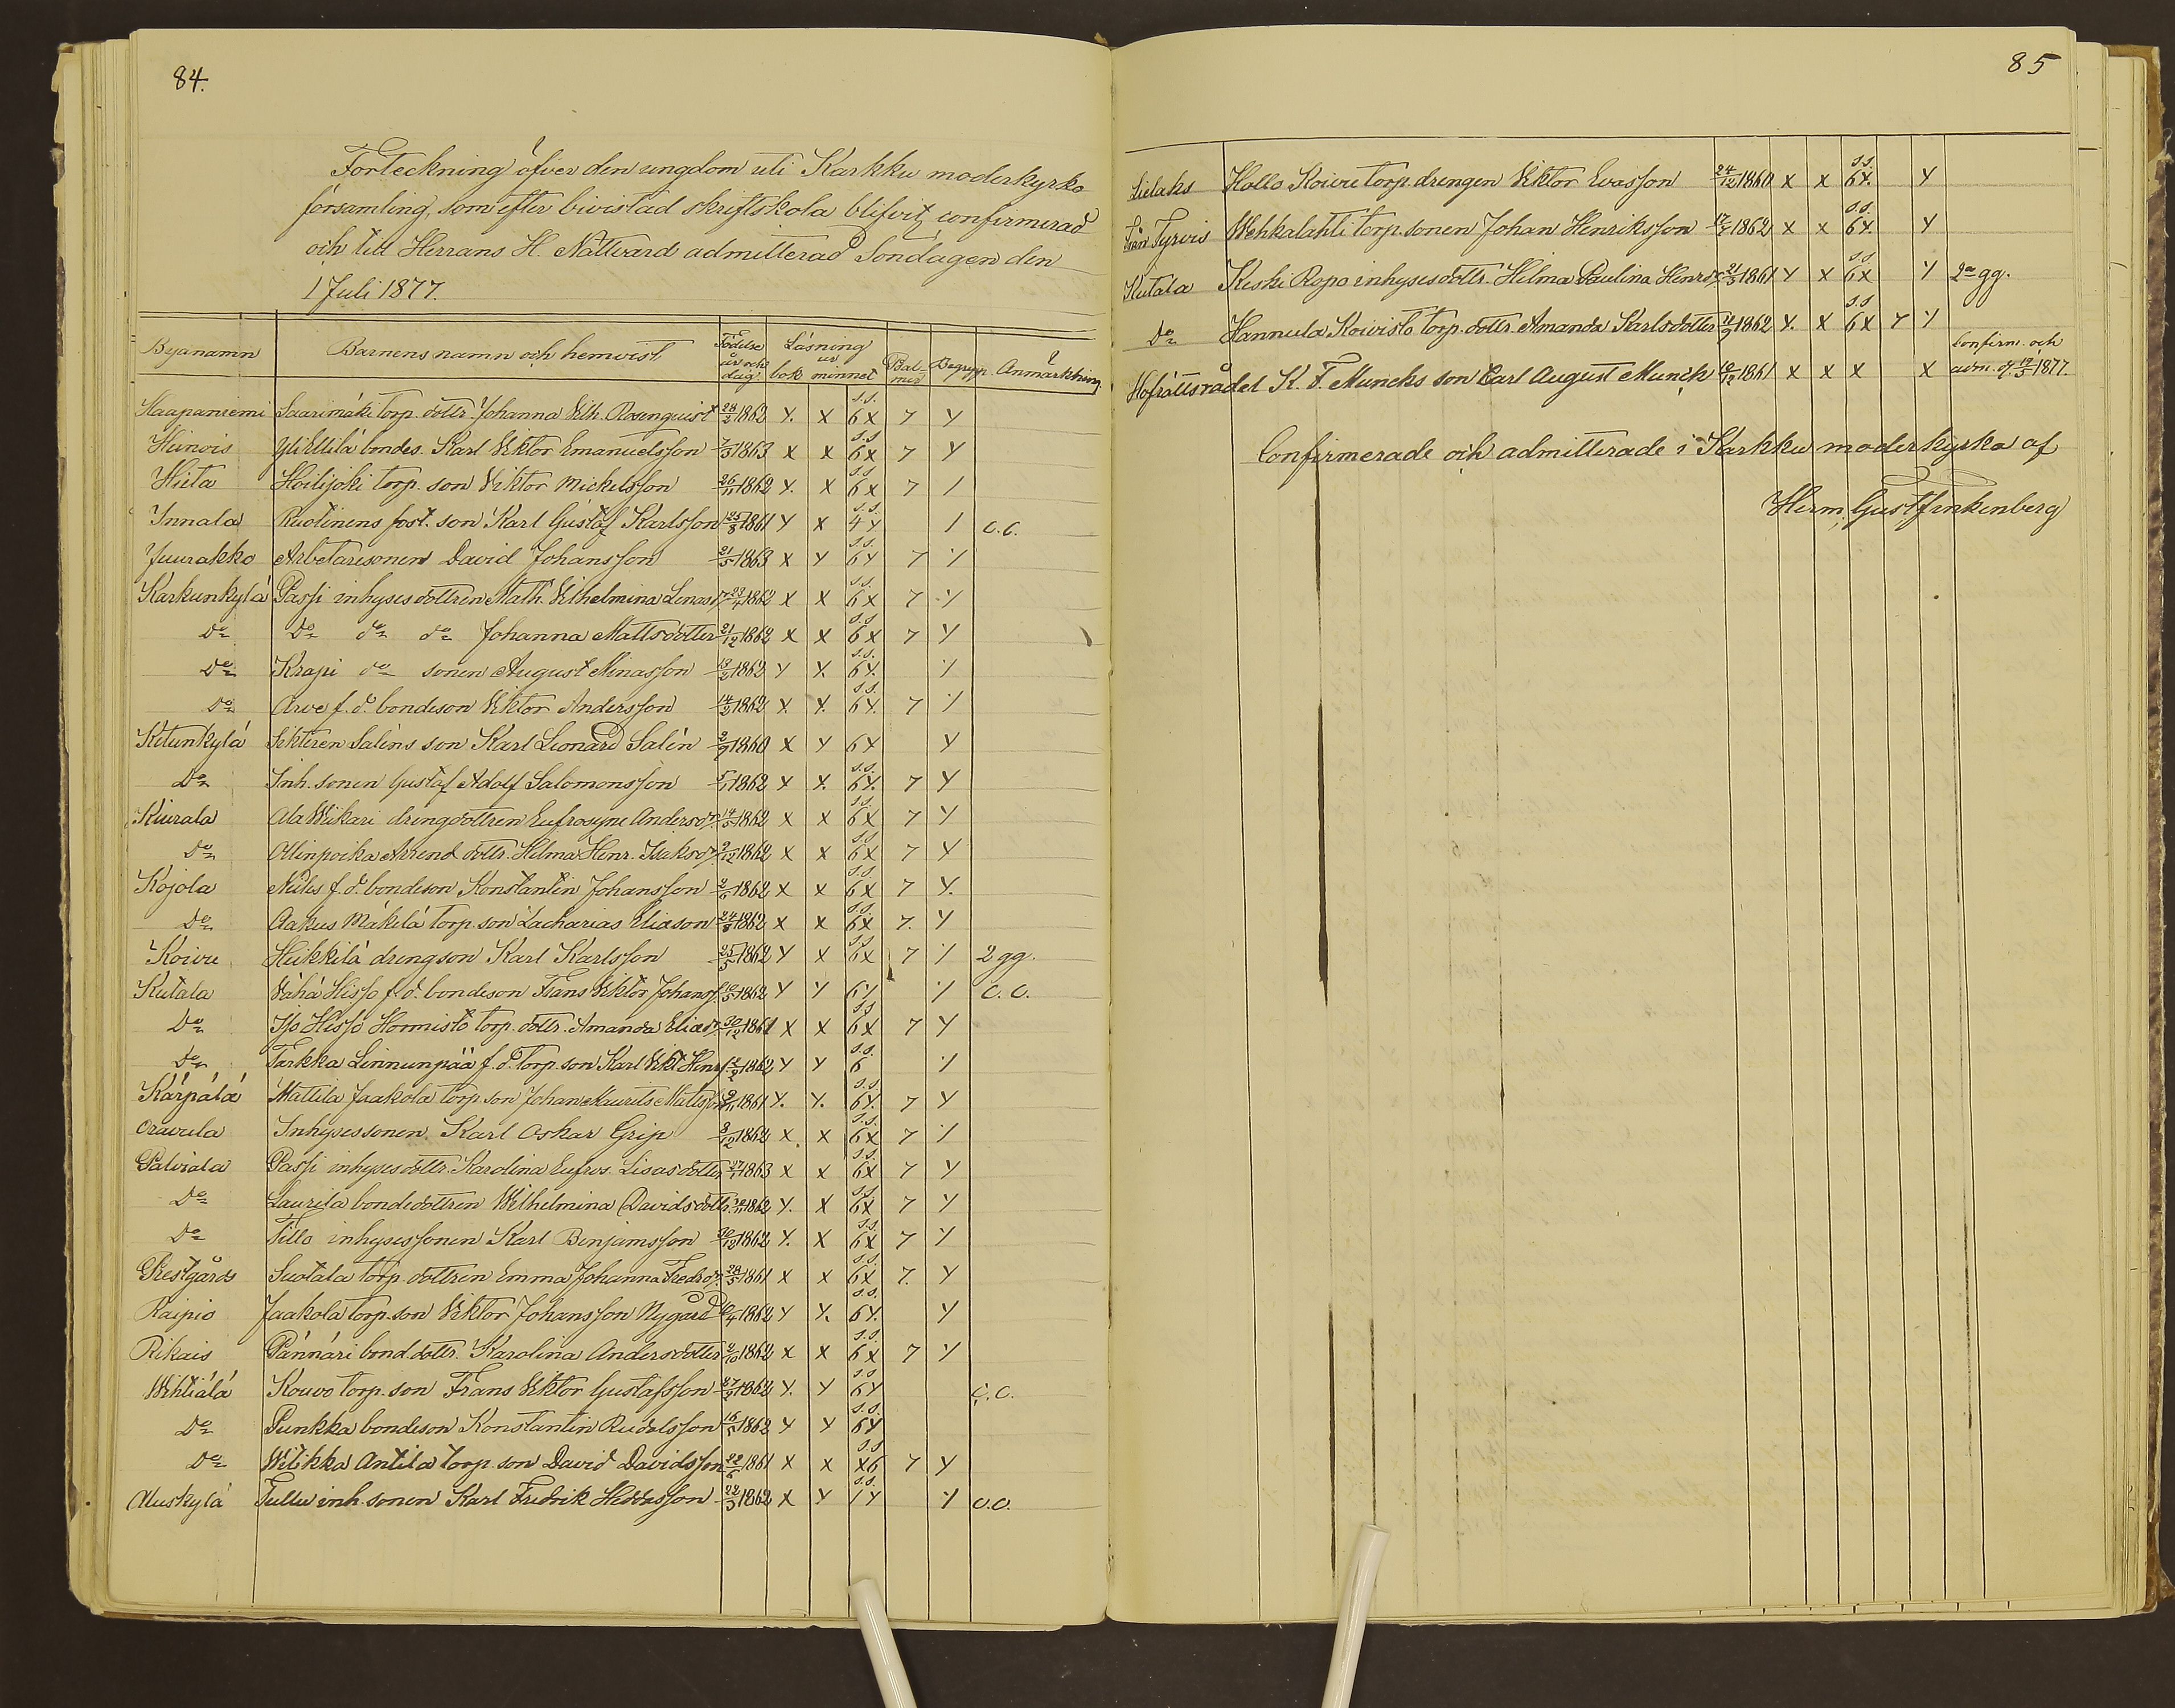 84.
Förteckning öfver den ungdom uti Karkku moderkyrko
församling, som efter bivistad skriftskola blifvit confirmerad
och till Herrans H. Nattvard admitterad Söndagen den
1 Juli 1877.
Byanamn Barnens namn och hemvist Födelse år och dag Läsning bok ur minnet Bat- mis Begrepp Anmärkning
Haapaniemi Saarimäki torp. dottr. Johanna Vilh. Rosenquist 28/2 1862 Y. X s.s. 6X 7 Y
Heinois Yli Uttila bondes. Karl Viktor Emanuelsson 7/3 1863 X X s.s. 6X 7 Y
Hieta Hoilijoki torp. son Viktor Mickelsson 26/11 1862 Y. X s.s. 6X 7 /
Innala Ruotinens fost. son Karl Gustaf Karlsson 25/3 1861 Y X s.s. 4Y / C.C.
Juurakko Arbetaresonen David Johansson 21/5 1863 X Y s.s. 6Y 7 Y
Karkunkylä Passi inhyses dottren Math. Vilhelmina Lenasd. 23/4 1862 X X s.s. 6X 7 Y
Do Do do do Johanna Mattsdotter 21/12 1862 X X s.s. 6X 7 Y
Do Krapi do sonen August Minasson 13/2 1862 Y Y. s.s. 6Y. Y
Do Arve f.d. bondeson Viktor Andersson 14/2 1862 Y. Y. s.s. 6Y. 7 Y
Kitunkylä Sekteren Saléns son Karl Leonard Salén 2/9 1860 X Y 6Y Y
Do Inh. sonen Gustaf Adolf Salomonsson 5/1 1862 Y Y. s.s. 6Y. 7 Y
Kiurala Ala Wikari drengdottren Eufrosyne Andersd. 14/5 1862 X X s.s. 6X 7 Y
Do Alinpoika Arrend dottr. Hilma Henr. Isaksd. 2/12 1862 X X s.s. 6X 7 Y
Kojola Nuhs f.d. bondeson Konstantin Johansson 2/6 1862 X X s.s. 6X 7 Y.
Do Aakus Mäkilä torp. son Zacharias Eliasson 24/8 1862 X X s.s. 6X 7. Y
Koivu Heikkilä drengson Karl Karlsson 25/5 1862 Y X s.s. 6X 7 Y 2 gg.
Kutala Vähä Hisso f.d. bondeson Frans Viktor Johanss. 10/5 1862 Y Y 6Y Y C.C.
Do Iso Hisso Hormisto torp. dottr. Amanda Eliasd. 30/12 1861 X X s.s. 6X 7 Y
Do Tarkka Linnunpää f.d. torp. son Karl Vikt. Henr. 1862 Y Y s.s. 6 Y
Kärpälä Mattila Jaakola torp. son Johan Maurits Mattsson 9/11 1861 Y. Y. s.s. 6Y. 7 Y
Oravula Inhysessonen Karl Oskar Grip 8/12 1862 X. X s.s. 6X 7 Y
Palviala Passi inhyses dottr. Karolina Eufros. Lisasdotter 27/1 1863 X X s.s. 6X 7 Y
Do Laurila bondedottren Wilhelmina Davidsdottr. 1862 Y. X s.s. 6X 7 Y
Do Tillo inhysessonen Karl Benjamsson 30/12 1862 Y. X s.s. 6X 7 Y
Prestgårds Suotala torp. dottren Emma Johanna Fredrd. 28/5 1861 X X s.s. 6X 7. Y
Raipio Jaakola torp. son Viktor Johansson Nygård 10/4 1862 Y Y. s.s. 6Y. Y
Rikais Pännäri bond. dottr. Karolina Andersdotter 2/10 1862 X X s.s. 6X 7 Y
Wihtiälä Kouvo torp. son Frans Viktor Gustafsson 27/9 1862 Y. Y s.s. 6Y C.C.
Do Punkka bondeson Konstantin Rudolsson 16/5 1862 Y Y s.s. 6Y
Do Witikka Antila torp. son David Davidsson 22/6 1861 X X s.s. X6 7 Y
Aluskylä Tullu inh. sonen Karl Fredrik Heddasson 22/3 1862 X Y s.s. 1Y Y C.C.
85
Lielaks Hollo Koivu torp. drengen Viktor Evasson 24/12 1860 X X s.s. 6Y. Y
från Tyrvis Wehkalahti torp. sonen Johan Henriksson 17/7 1862 X X s.s. 6Y. Y
Kutala Keski Ropo inhyses dottr. Hilma Paulina Henrsd. 21/5 1861 Y X s.s. 6X Y 2a gg.
Do Hannula Koivisto torp. dottr. Amanda Karlsdotter 11/9 1862 Y. X s.s. 6X 7 Y
Hofrättsrådet K. F. Muncks son Carl August Munck 10/12 1861 X X X X confirm. och adm. d. 19/5 1877
Confirmerade och admitterade i Karkku moderkyrka af
Herm. Gust Finkenberg